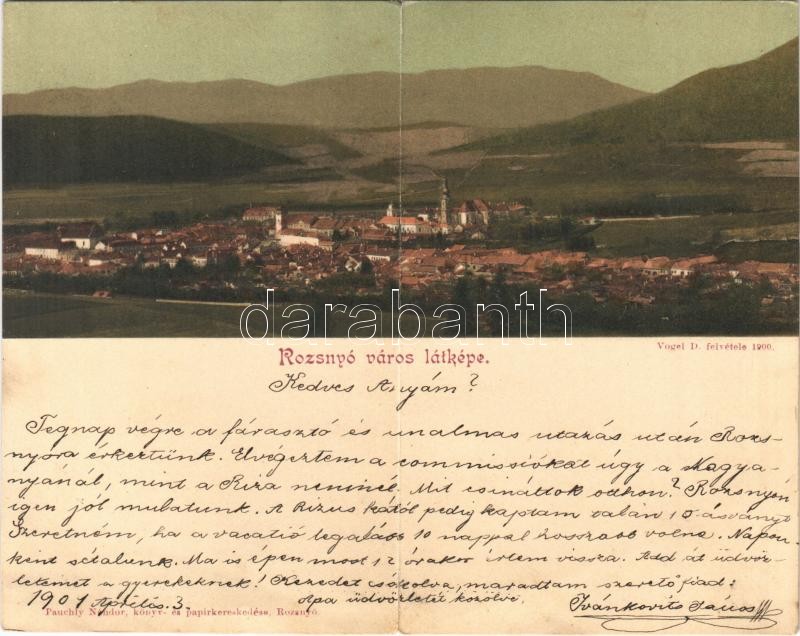 darabanth
Vogel D. felvétele 1900.
Rozsnyó város látképe.
Kedves Anyám?
Tegnap végre a fárasztó és unalmas utazás után Rozs-
nyóra érkeztünk. Elvégeztem a commissiókat úgy a Nagya-
nyánál, mint a Riza néninél. Mit csináltok otthon? Rozsnyón
igen jól mulatunk. A Rizus kától pedig kaptam talán 10 ásványt
Szeretném, ha a vacatió legalább 10 nappal hosszabb volna. Napon-
ként sétálunk. Ma is épen most 12 órakor értem vissza. Add át üdvöz-
letemet a gyerekeknek! Kezedet csókolva, maradtam szerető fiad:
1901 Április 3. Apa üdvözletét közölve, Ivánkovits János
Pauchly Nándor, könyv- és papirkereskedése, Rozsnyó.